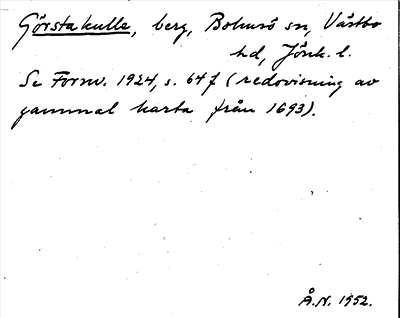 Görstakulle, berg, Bolmsö sn, Västbo
hd, Jönk. l.
Se Fornv. 1924, s. 64 f (redovisning av
gammal karta från 1693).
Å.N. 1952.